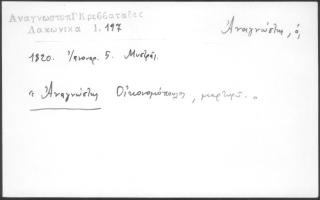 Ἀναγνωστοπ Κρεββαταδες
Λακωνικα 1. 197
Ἀναγνώστης, ὁ,
1820. Ἰανουαρ. 5. Μυστρᾶ.
Ἀναγνώστης Οἰκονομόπουλος, μαρτυρ..